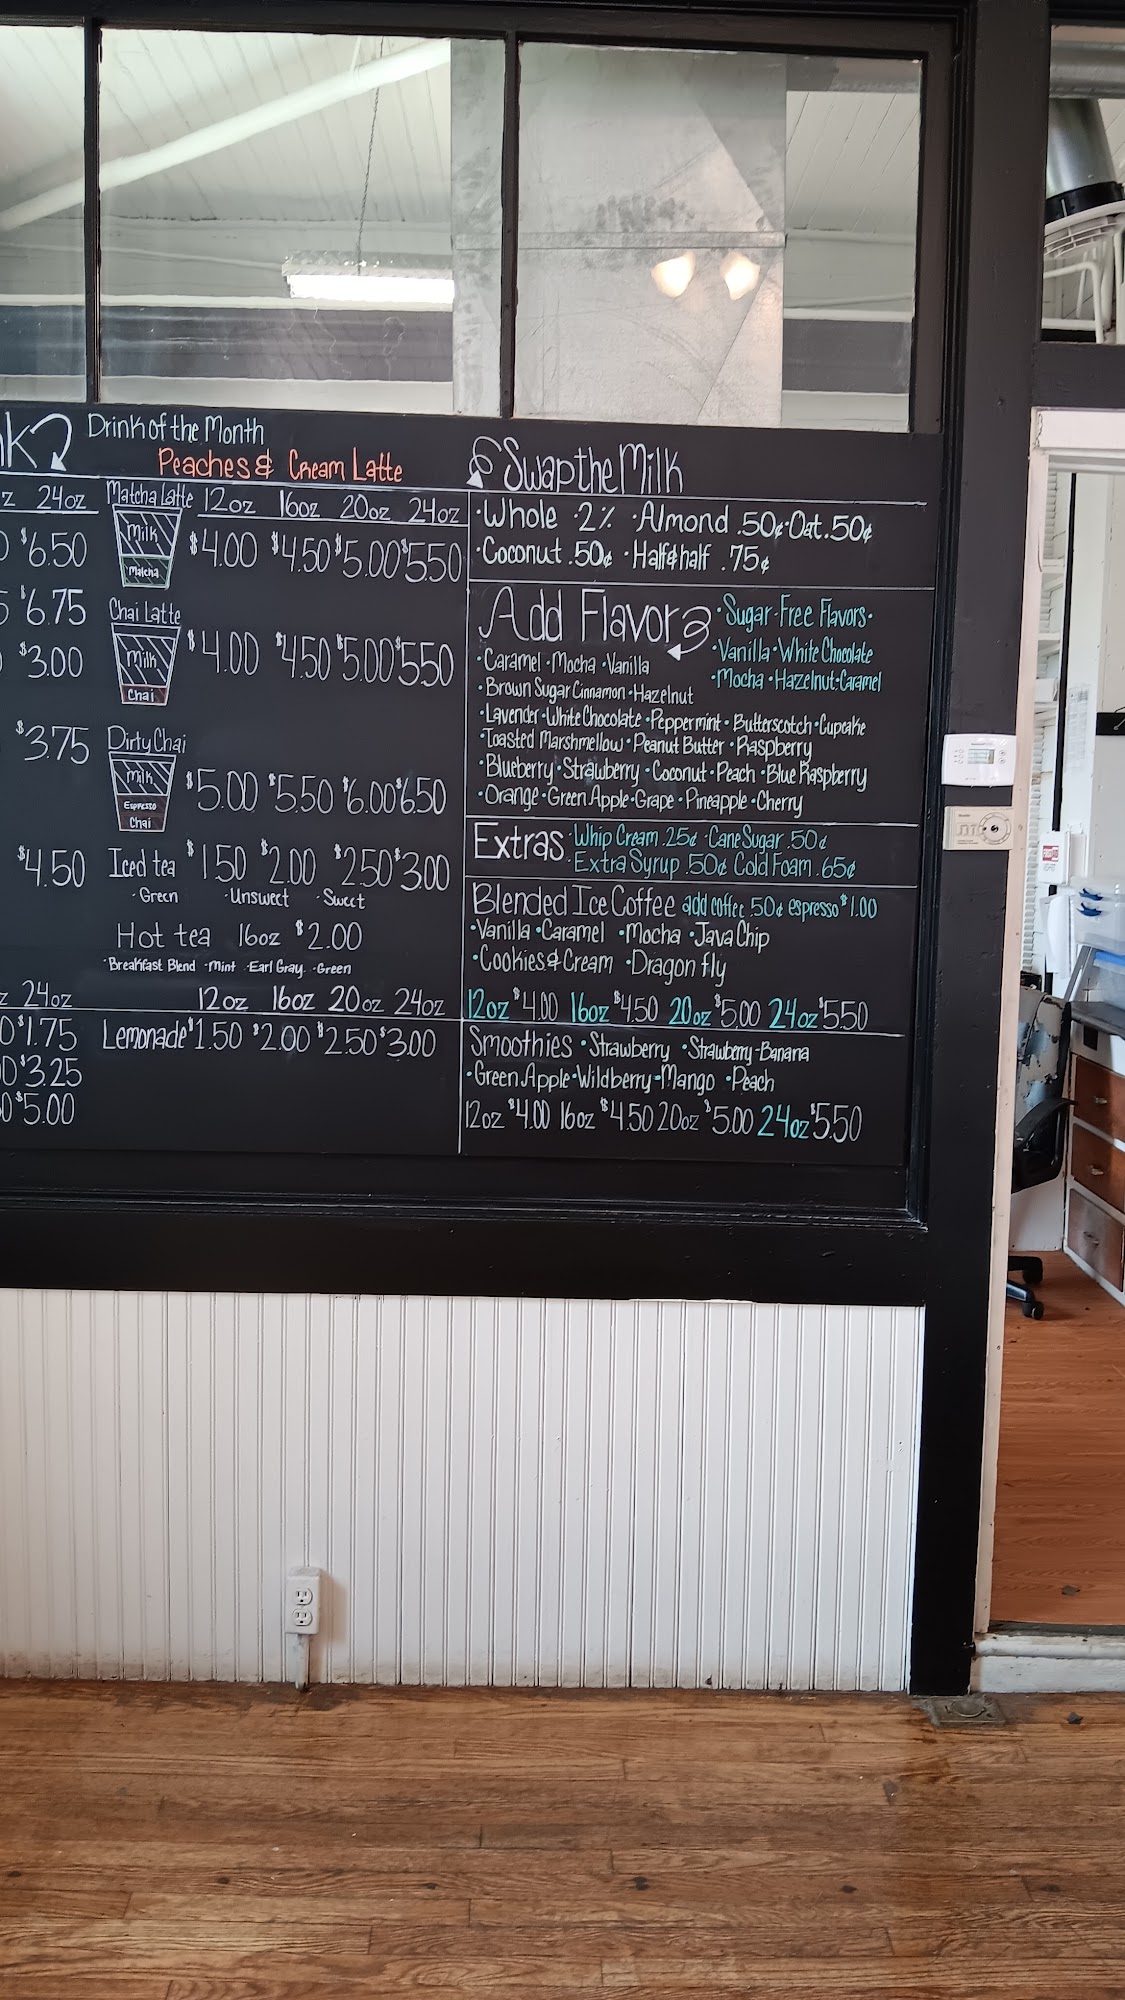 Drink of the Month
Peaches & Cream Latte
24oz
$6.50
$6.75
$3.00
$3.75
$4.50
24oz
$1.75
$3.25
$5.00
Matcha Latte 12oz 16oz 20oz 24oz
Milk
Matcha
$4.00 $4.50 $5.00 $5.50
Chai Latte
Milk
Chai
$4.00 $4.50 $5.00 $5.50
Dirty Chai
Milk
Espresso
Chai
$5.00 $5.50 $6.00 $6.50
Iced tea $1.50 $2.00 $2.50 $3.00
·Green ·Unsweet ·Sweet
Hot tea 16oz $2.00
·Breakfast Blend ·Mint ·Earl Gray ·Green
12oz 16oz 20oz 24oz
Lemonade $1.50 $2.00 $2.50 $3.00
Swap the Milk
·Whole ·2% ·Almond .50¢ ·Oat .50¢
·Coconut .50¢ ·Half & half .75¢
Add Flavor
·Caramel ·Mocha ·Vanilla
·Brown Sugar Cinnamon ·Hazelnut
·Lavender ·White Chocolate ·Peppermint ·Butterscotch ·Cupcake
·Toasted Marshmellow ·Peanut Butter ·Raspberry
·Blueberry ·Strawberry ·Coconut ·Peach ·Blue Raspberry
·Orange ·Green Apple ·Grape ·Pineapple ·Cherry
·Sugar-Free Flavors·
·Vanilla ·White Chocolate
·Mocha ·Hazelnut ·Caramel
Extras ·Whip Cream .25¢ ·Cane Sugar .50¢
·Extra Syrup .50¢ Cold Foam .65¢
Blended Ice Coffee add coffee .50¢ espresso $1.00
·Vanilla ·Caramel ·Mocha ·Java Chip
·Cookies & Cream ·Dragon fly
12oz $4.00 16oz $4.50 20oz $5.00 24oz $5.50
Smoothies ·Strawberry ·Strawberry-Banana
·Green Apple ·Wildberry ·Mango ·Peach
12oz $4.00 16oz $4.50 20oz $5.00 24oz $5.50